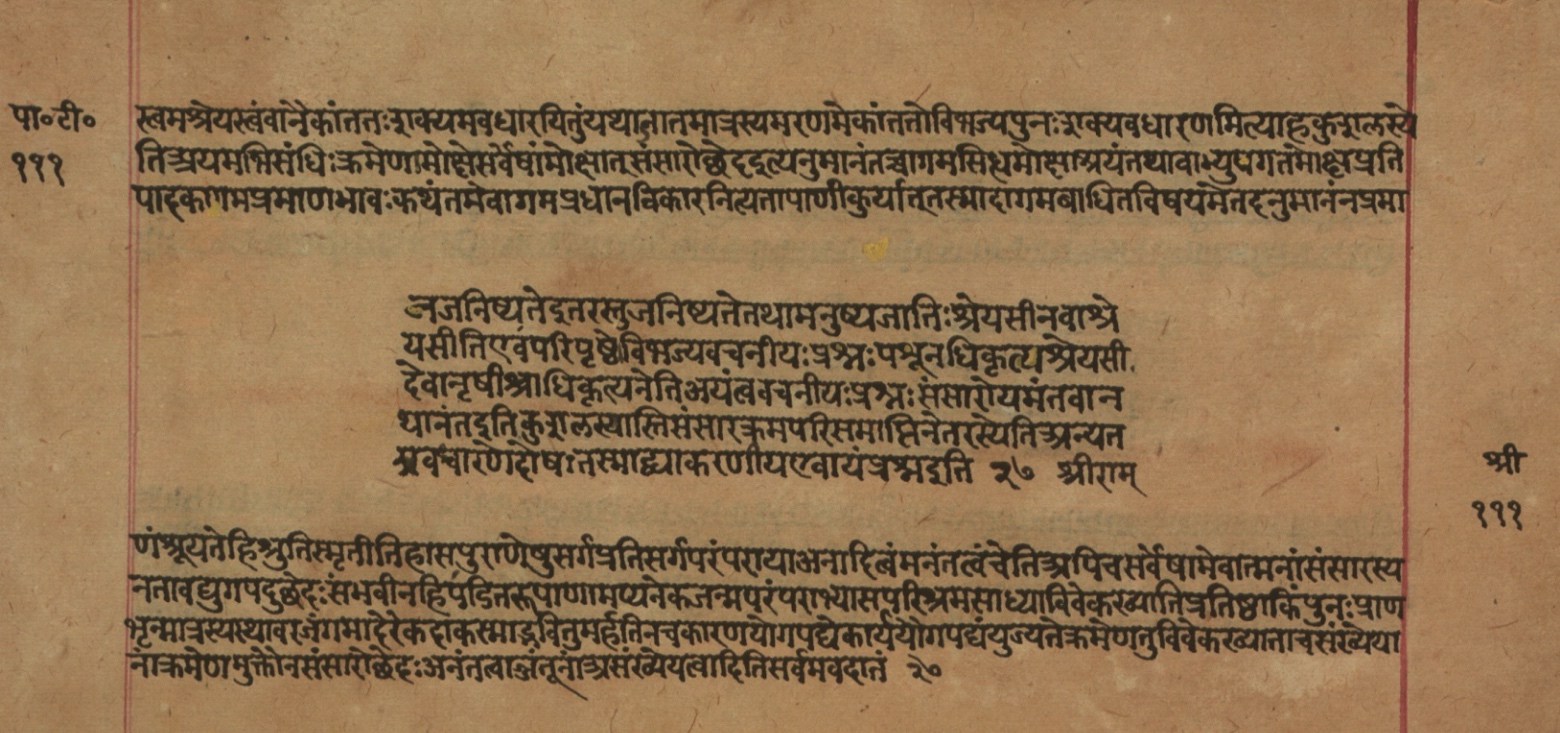 पा॰टी॰
१११
स्त्वमश्रेयस्त्वंवानैकांततःशक्यमवधारयितुंयथाजातमात्रस्यमरणमेकांततोविभज्यपुनःशक्यवधारणमित्याहकुशलस्ये
तिअयमभिसंधिःक्रमेणमोक्षेसर्वेषांमोक्षात्संसारोछेदइत्यनुमानंतच्चागमसिद्धमोक्षाश्रयंतथाचाभ्युपगतमोक्षप्रति
पादकागमप्रमाणभावःकथंतमेवागमप्रधानविकारनित्यतापाणीकुर्यात्तस्मादागमबाधितविषयमेतदनुमानंनप्रमा
जनिष्यतेइतरस्तुजनिष्यतेतथामनुष्यजातिःश्रेयसीनवाश्रे
यसीतिएवंपरिपृष्ठेविभज्यवचनीयःप्रश्नःपशूनधिकृत्यश्रेयसी
देवानृषींश्चाधिकृत्यनेतिअयंत्ववचनीयःप्रश्नःसंसारोयमंतवान
थानंतइतिकुशलस्यास्तिसंसारक्रमपरिसमाप्तिर्नेतरस्येतिअन्यत
रावधारणेदोषःतस्माद्व्याकरणीयएवायंप्रश्नइति २७ श्रीराम्
श्री
१११
णंश्रूयतेहिश्रुतिस्मृतीतिहासपुराणेषुसर्गप्रतिसर्गपरंपरायाअनादित्वमनंतत्वंचेतिअपिचसर्वेषामेवात्मनांसंसारस्य
नतावद्युगपदुछेदःसंभवीनहिपंडितरूपाणामप्यनेकजन्मपरंपराभ्यासपरिश्रमसाध्याविवेकख्यातिप्रतिष्ठाकिंपुनःप्राण
भृन्मात्रस्यस्थावरजंगमादेरेकदाकस्माद्भवितुमर्हतिनचकारणयौगपद्येकार्ययौगपद्यंयुज्यतेक्रमेणतुविवेकख्यातावसंख्येया
नांक्रमेणमुक्तौनसंसारोछेदःअनंतत्वाज्जंतूनांअसंख्येयत्वादितिसर्वमवदातं २७